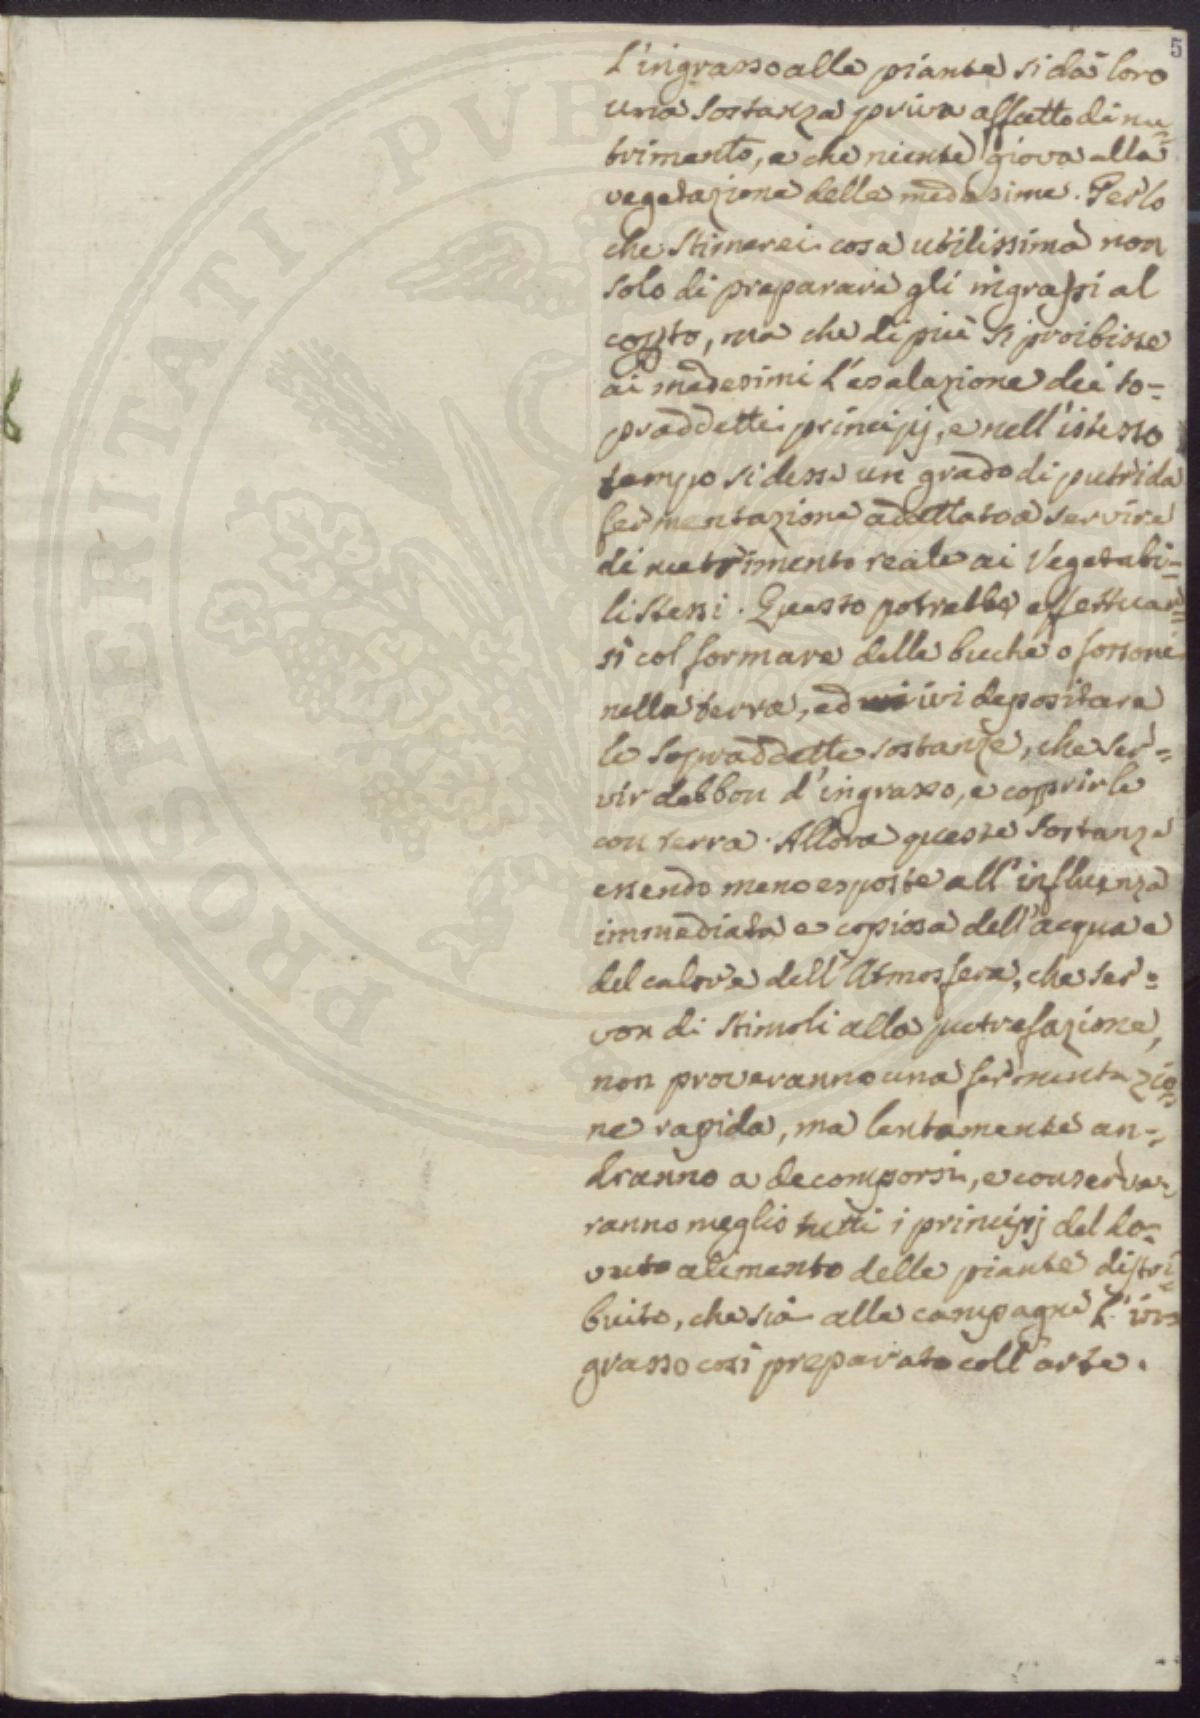 5
L'ingrasso alle piante si dà loro
una sostanza priva affatto di nu=
trimento, e che niente giova alla
vegetazione delle medesime. Perlo
che stimerei cosa utilissima non
solo di preparare gli ingrassi al
coperto, ma che di più si proibisse
ai medesimi l'esalazione dei so=
praddetti principj, e nell'istesso
tempo si desse un grado di putrida
fermentazione adattato a servire
di nutrimento reale ai Vegetabi=
li stessi. Questo potrebbe effettuar=
si col formare delle buche o fossoni
nella terra, ed ivi depositare
le sopraddette sostanze, che ser=
vir debbon d'ingrasso, e coprirle
con terra. Allora queste sostanze
essendo meno esposte all'influenza
immediata e copiosa dell'acqua e
del calore dell'Atmosfera, che ser=
von di stimoli alla putrefazione,
non proveranno una fermentazio=
ne rapida, ma lentamente an=
dranno a decomporsi, e conserve=
ranno meglio tutti i principj del do=
vuto alimento delle piante distri=
buito, che sia alle campagne l'in=
grasso così preparato coll'arte.
PROSPERITATI PVBL